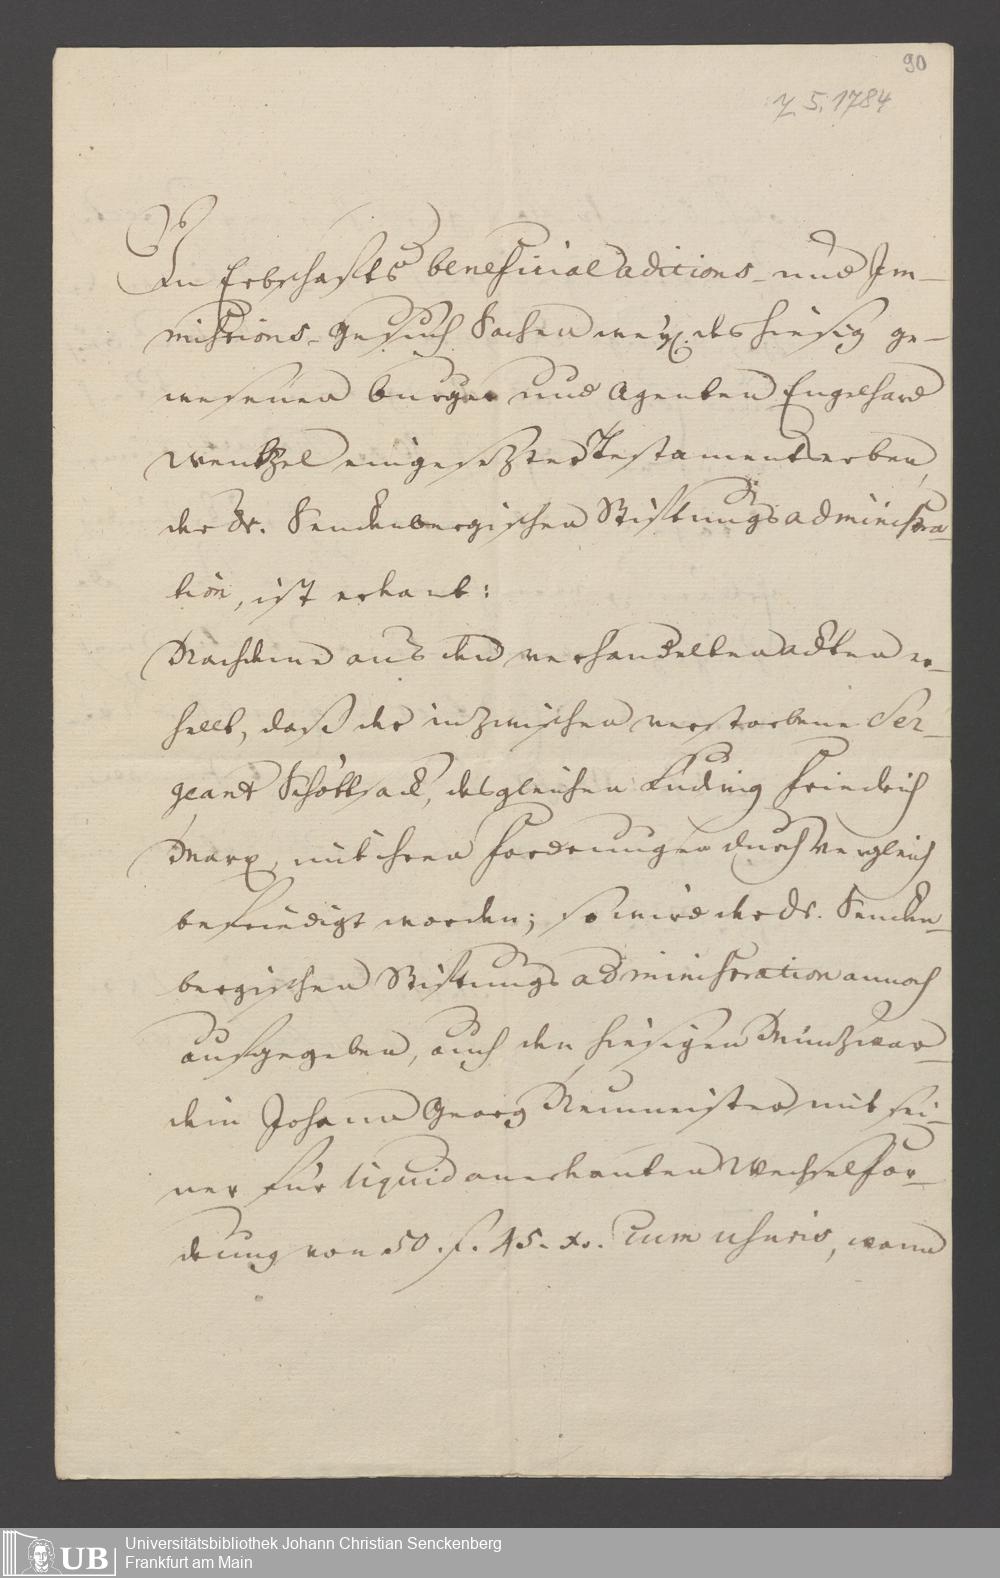 90
7. 5. 1784
In Erbschafts beneficial aditions- und Im-
missions-Gesuch Sachen weyl. des hiesig ge-
wesenen Burger und Agenten Engelhard
Wentzel eingesezter Testamentserben,
der Dr. Senckenbergischen Stiftungsadministra-
tion, ist erkant:
Nachdeme aus den verhandelten Ackten er-
hellt, daß der inzwischen verstorbene Ser-
geant Schottsack, desgleichen Ludwig Friedrich
Marx, mit ihren Forderungen durch Vergleich
befriedigt worden; so wird der Dr. Sencken-
bergischen Stiftungs administration annoch
aufgegeben, auch den hiesigen Münzwar-
dein Johann Georg Neumeister mit sei-
ner für liquid anerkanten Wechselfor-
derung von 50. f. 45. xr. cum usuris, wann
UB
Universitätsbibliothek Johann Christian Senckenberg
Frankfurt am Main